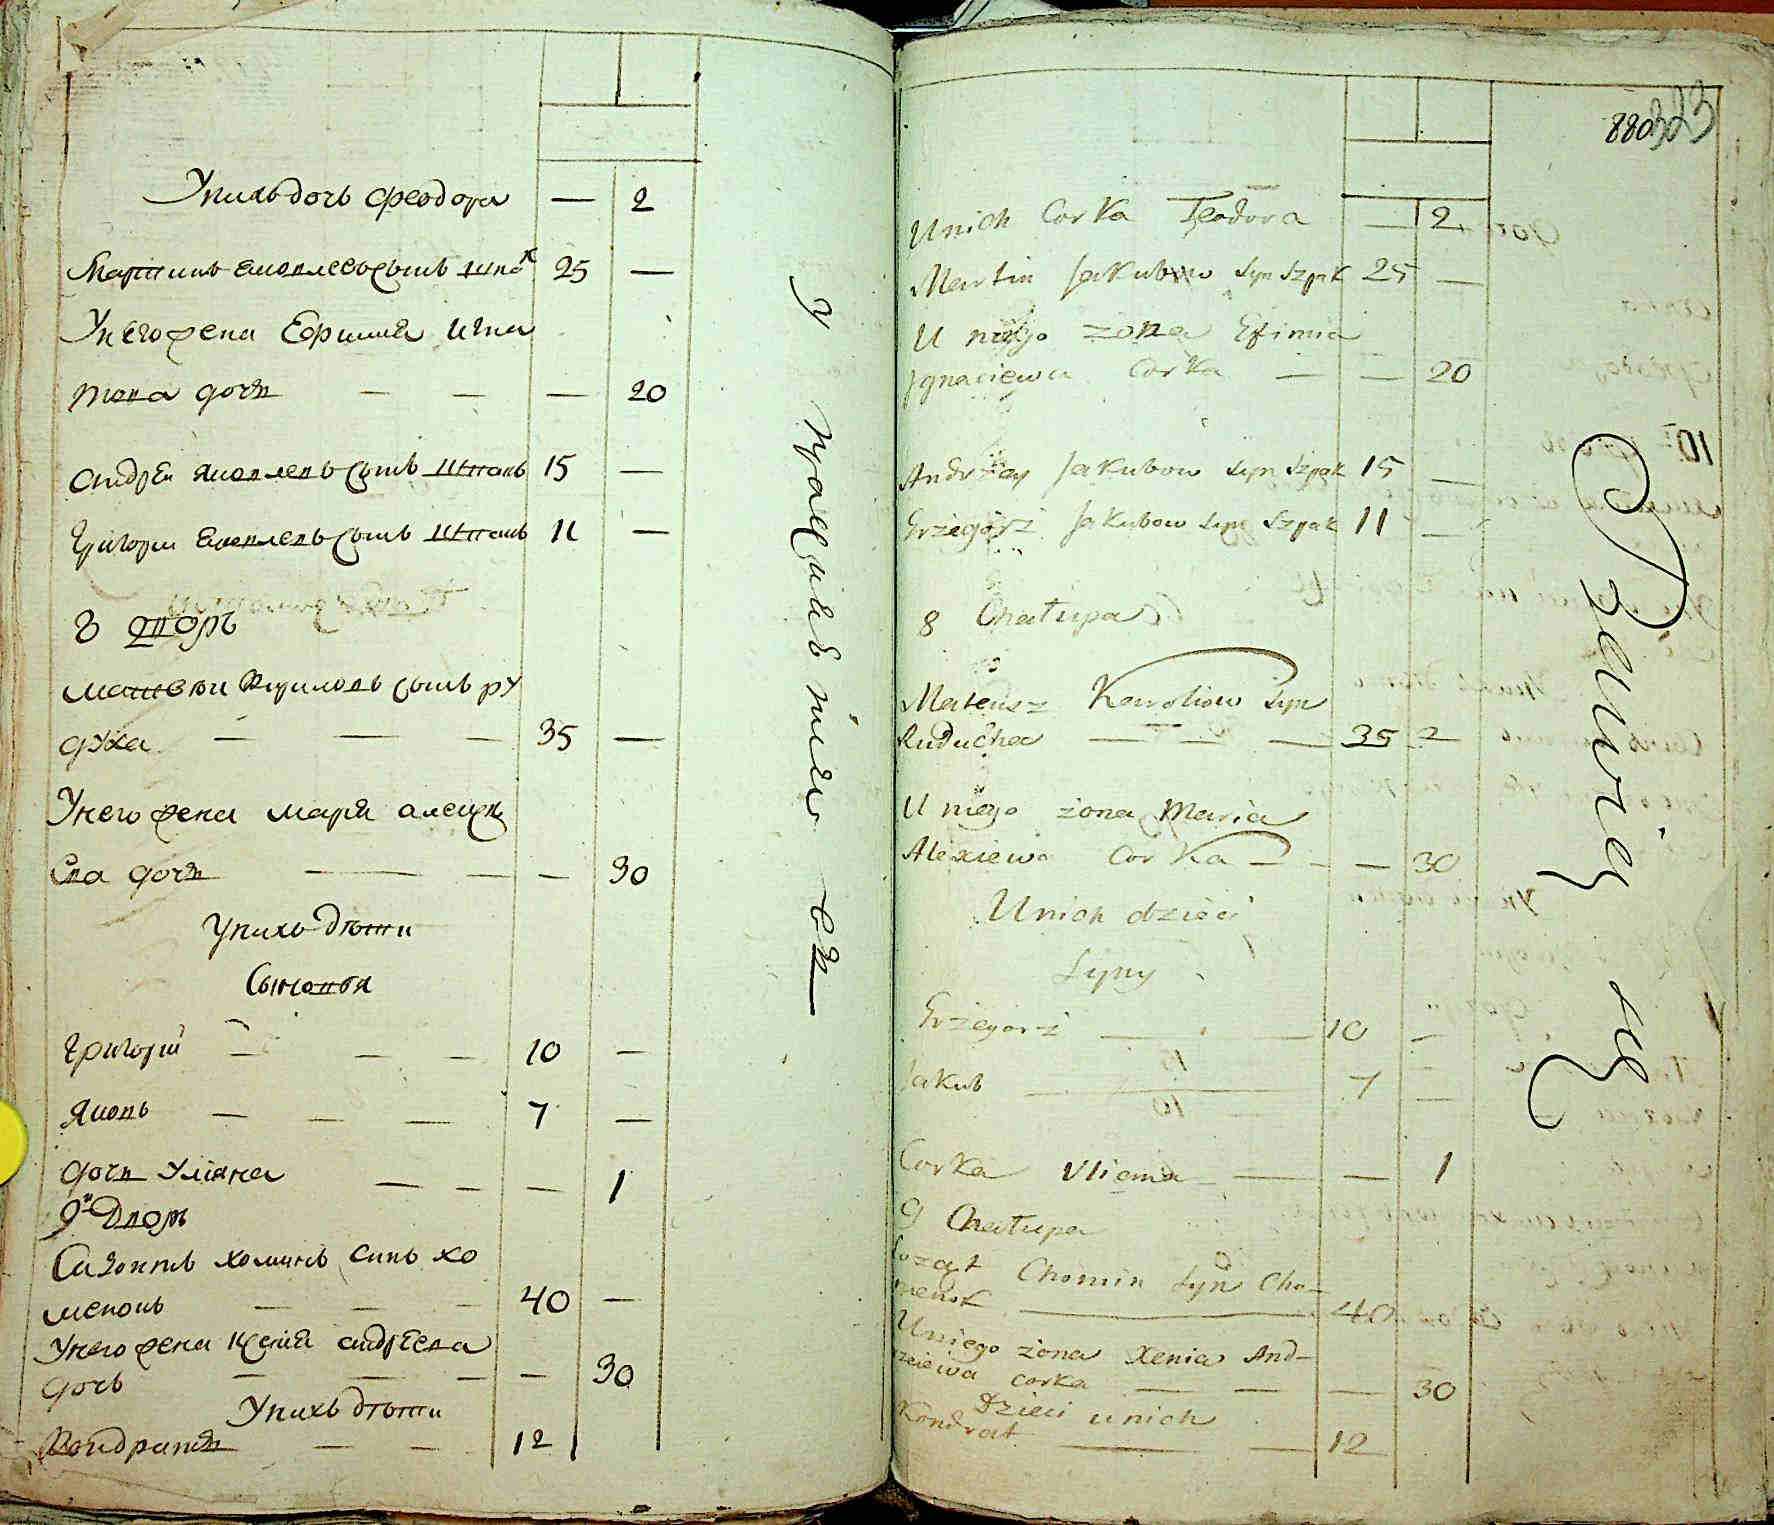 У нихъ дочь Феодора — 2
Мартинъ Яковлевъ сынъ шпакъ 25 —
У него жена Ефимия Игна
това дочь — — — 20
Андрей Яковлевъ сынъ шпакъ 15 —
Григори Яковлевъ сынъ шпакъ 11 —
8 дворъ
Матвей Кириловъ сынъ ру
духа — — — 35 —
У него жена Марья Алексѣ
ева дочь — — — 30
У нихъ дѣти
Сыновья
Григорій — — — 10 —
Яковъ — — — 7 —
дочь Уліяна — — — 1
9й Дворъ
Созонтъ хоминъ синъ хо
менокъ — — — 40 —
У него жена Ксенія Андрѣева
дочь — — — — 30
У нихъ дѣти
Кондратъ — — 12
880 323
U nich Corka Teodora — 2
Martin Jakubow Syn Szpak 25 —
U niego żona Efimia
Jgnaciewa Corka — — 20
Andrzey Jakubow Syn Szpak 15 —
Grzegorz Jakubow Syn Szpak 11 —
8 Chałupa
Mateusz Karolow Syn
Ruducha — — — 35 —
U niego żona Maria
Alexiewa Corka — — — 30
U nich dzieci
Syny
Grzegorz — — 10 —
Jakub — 7 —
Corka Uliana — — 1
9 Chałupa
Soząt Chomin Syn Cho-
menok — 40
U niego żona Xenia And-
rzeiewa corka — — — 30
Dzieci u nich
Kondrat — — 12